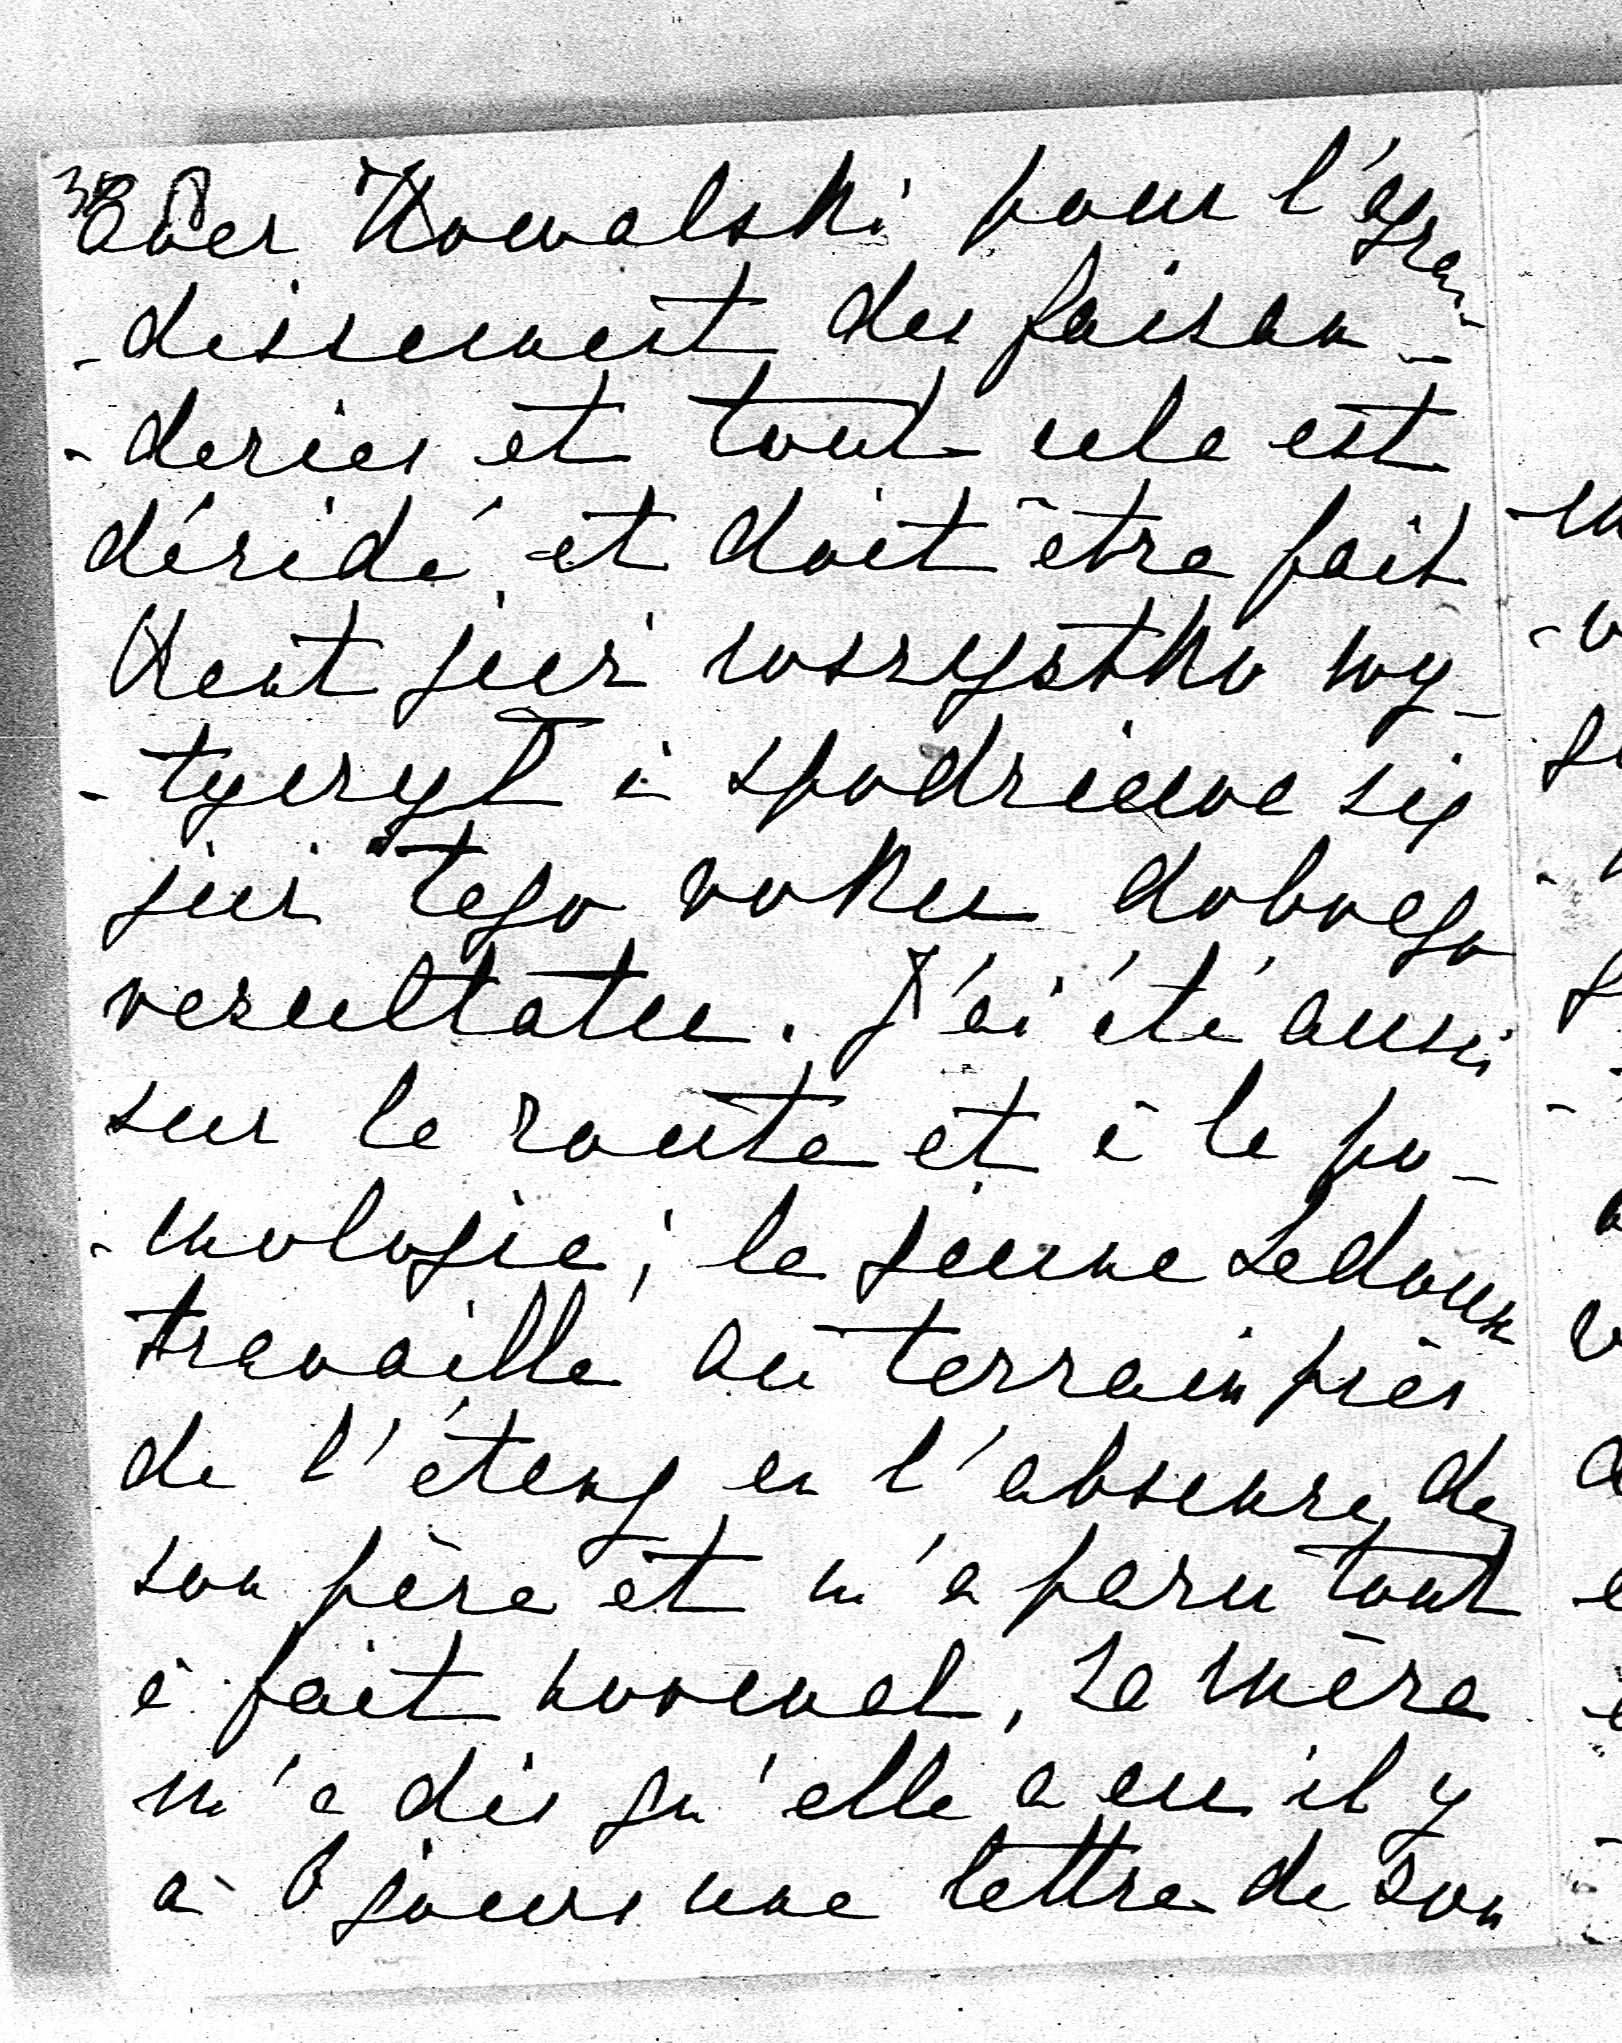 chez Kowalski pour l'agran-
-dissement des faisan-
-deries et tout cela est
décidé et doit être fait
Kent już wszystko wy-
-tyczył i spodziewa się
już tego roku dobrego
rezultatu. J'ai été aussi
sur la route et à la po-
-mologie; le jeune Ledoux
travaille au terrain près
de l'étang en l'absence de
son père et m'a paru tout
à fait normal, sa mère
m'a dis qu'elle a eu il y
a 8 jours une lettre de son